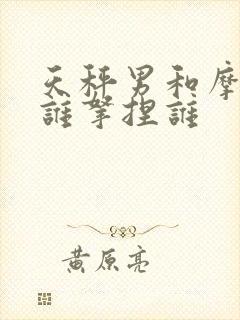 天秤男和摩
誰拏捏誰
黃原亮